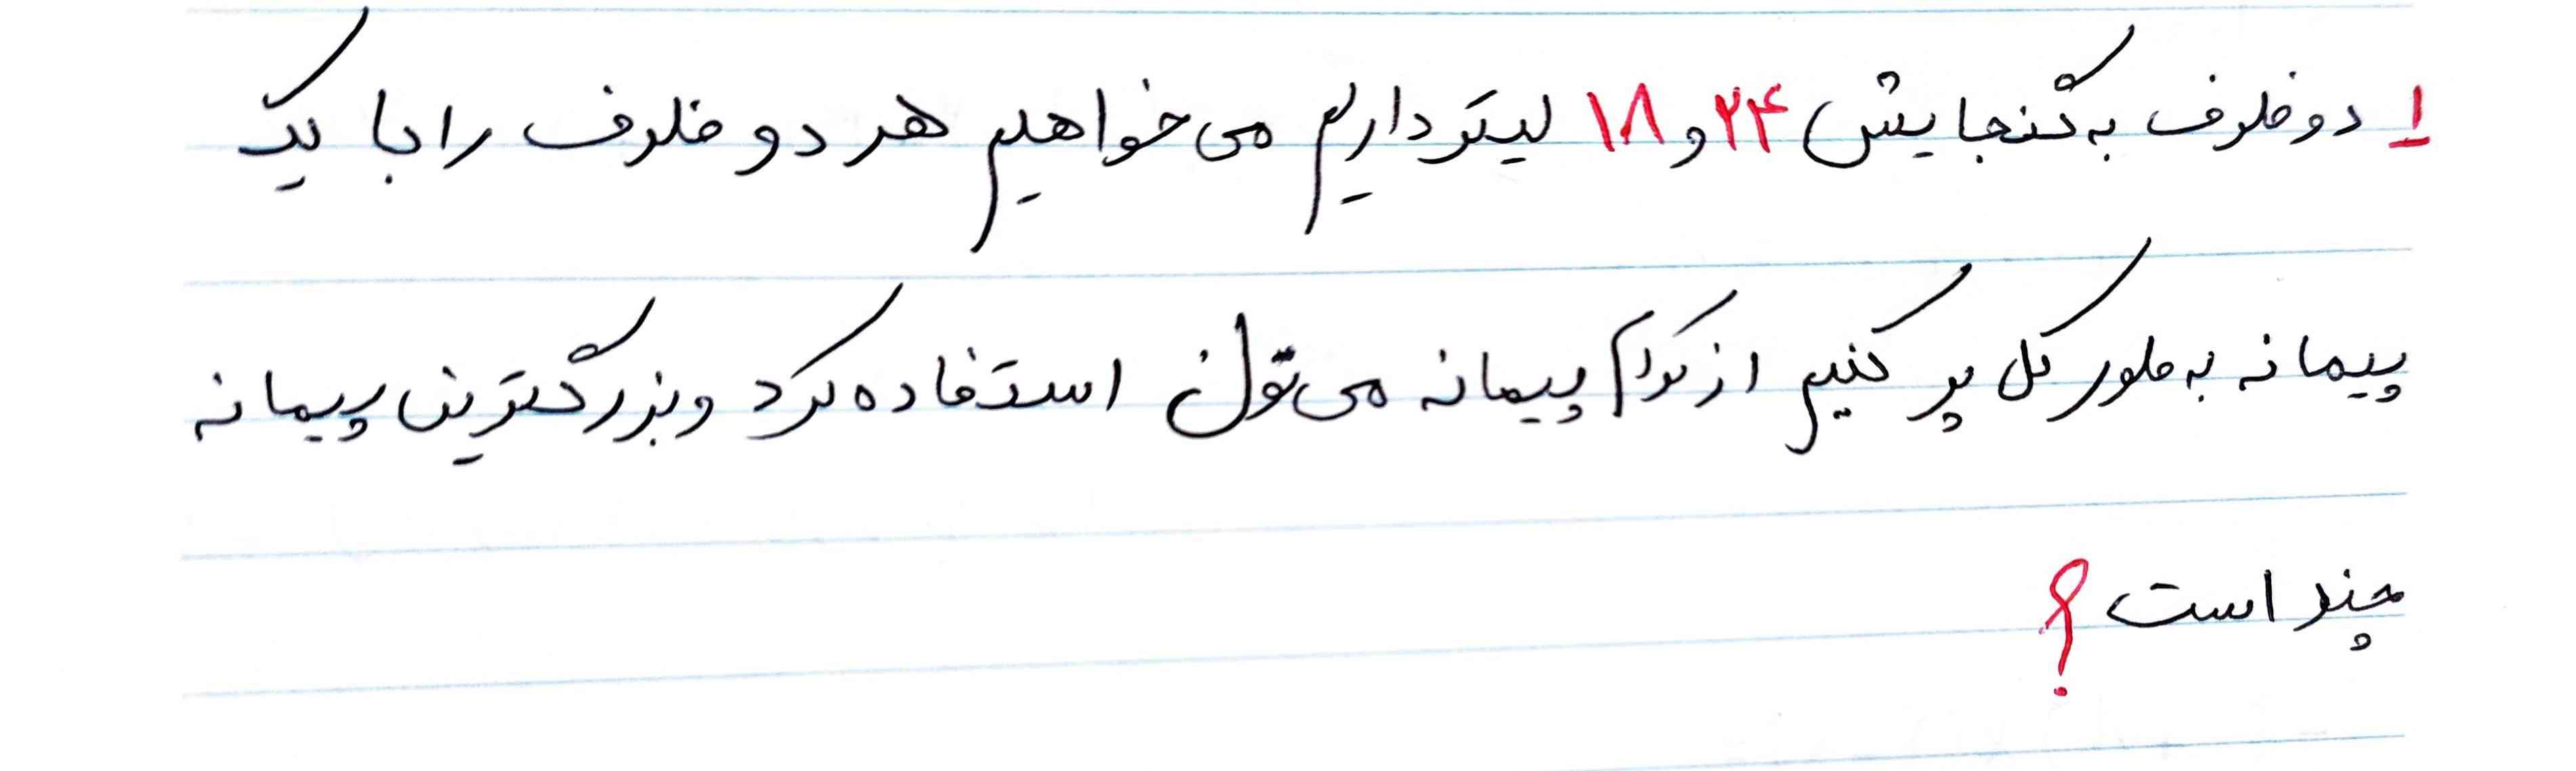 ۱ دو ظرف به گنجایش ۲۴ و ۱۸ لیتر داریم می‌خواهیم هر دو ظرف را با یک
پیمانه به طور کل پر کنیم از کدام پیمانه می‌توان استفاده کرد و بزرگترین پیمانه
چند است ؟